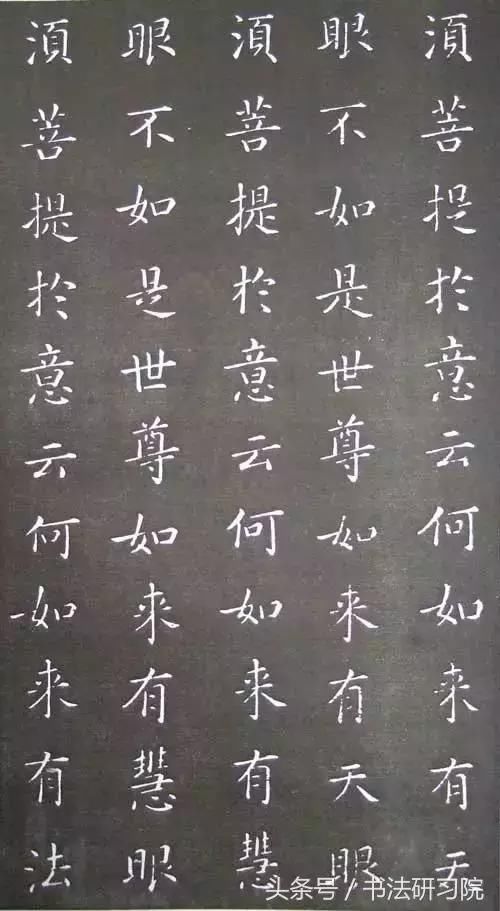 須菩提於意云何如来有天
眼不如是世尊如来有天眼
須菩提於意云何如来有慧
眼不如是世尊如来有慧眼
須菩提於意云何如来有法
头条号 / 书法研习院